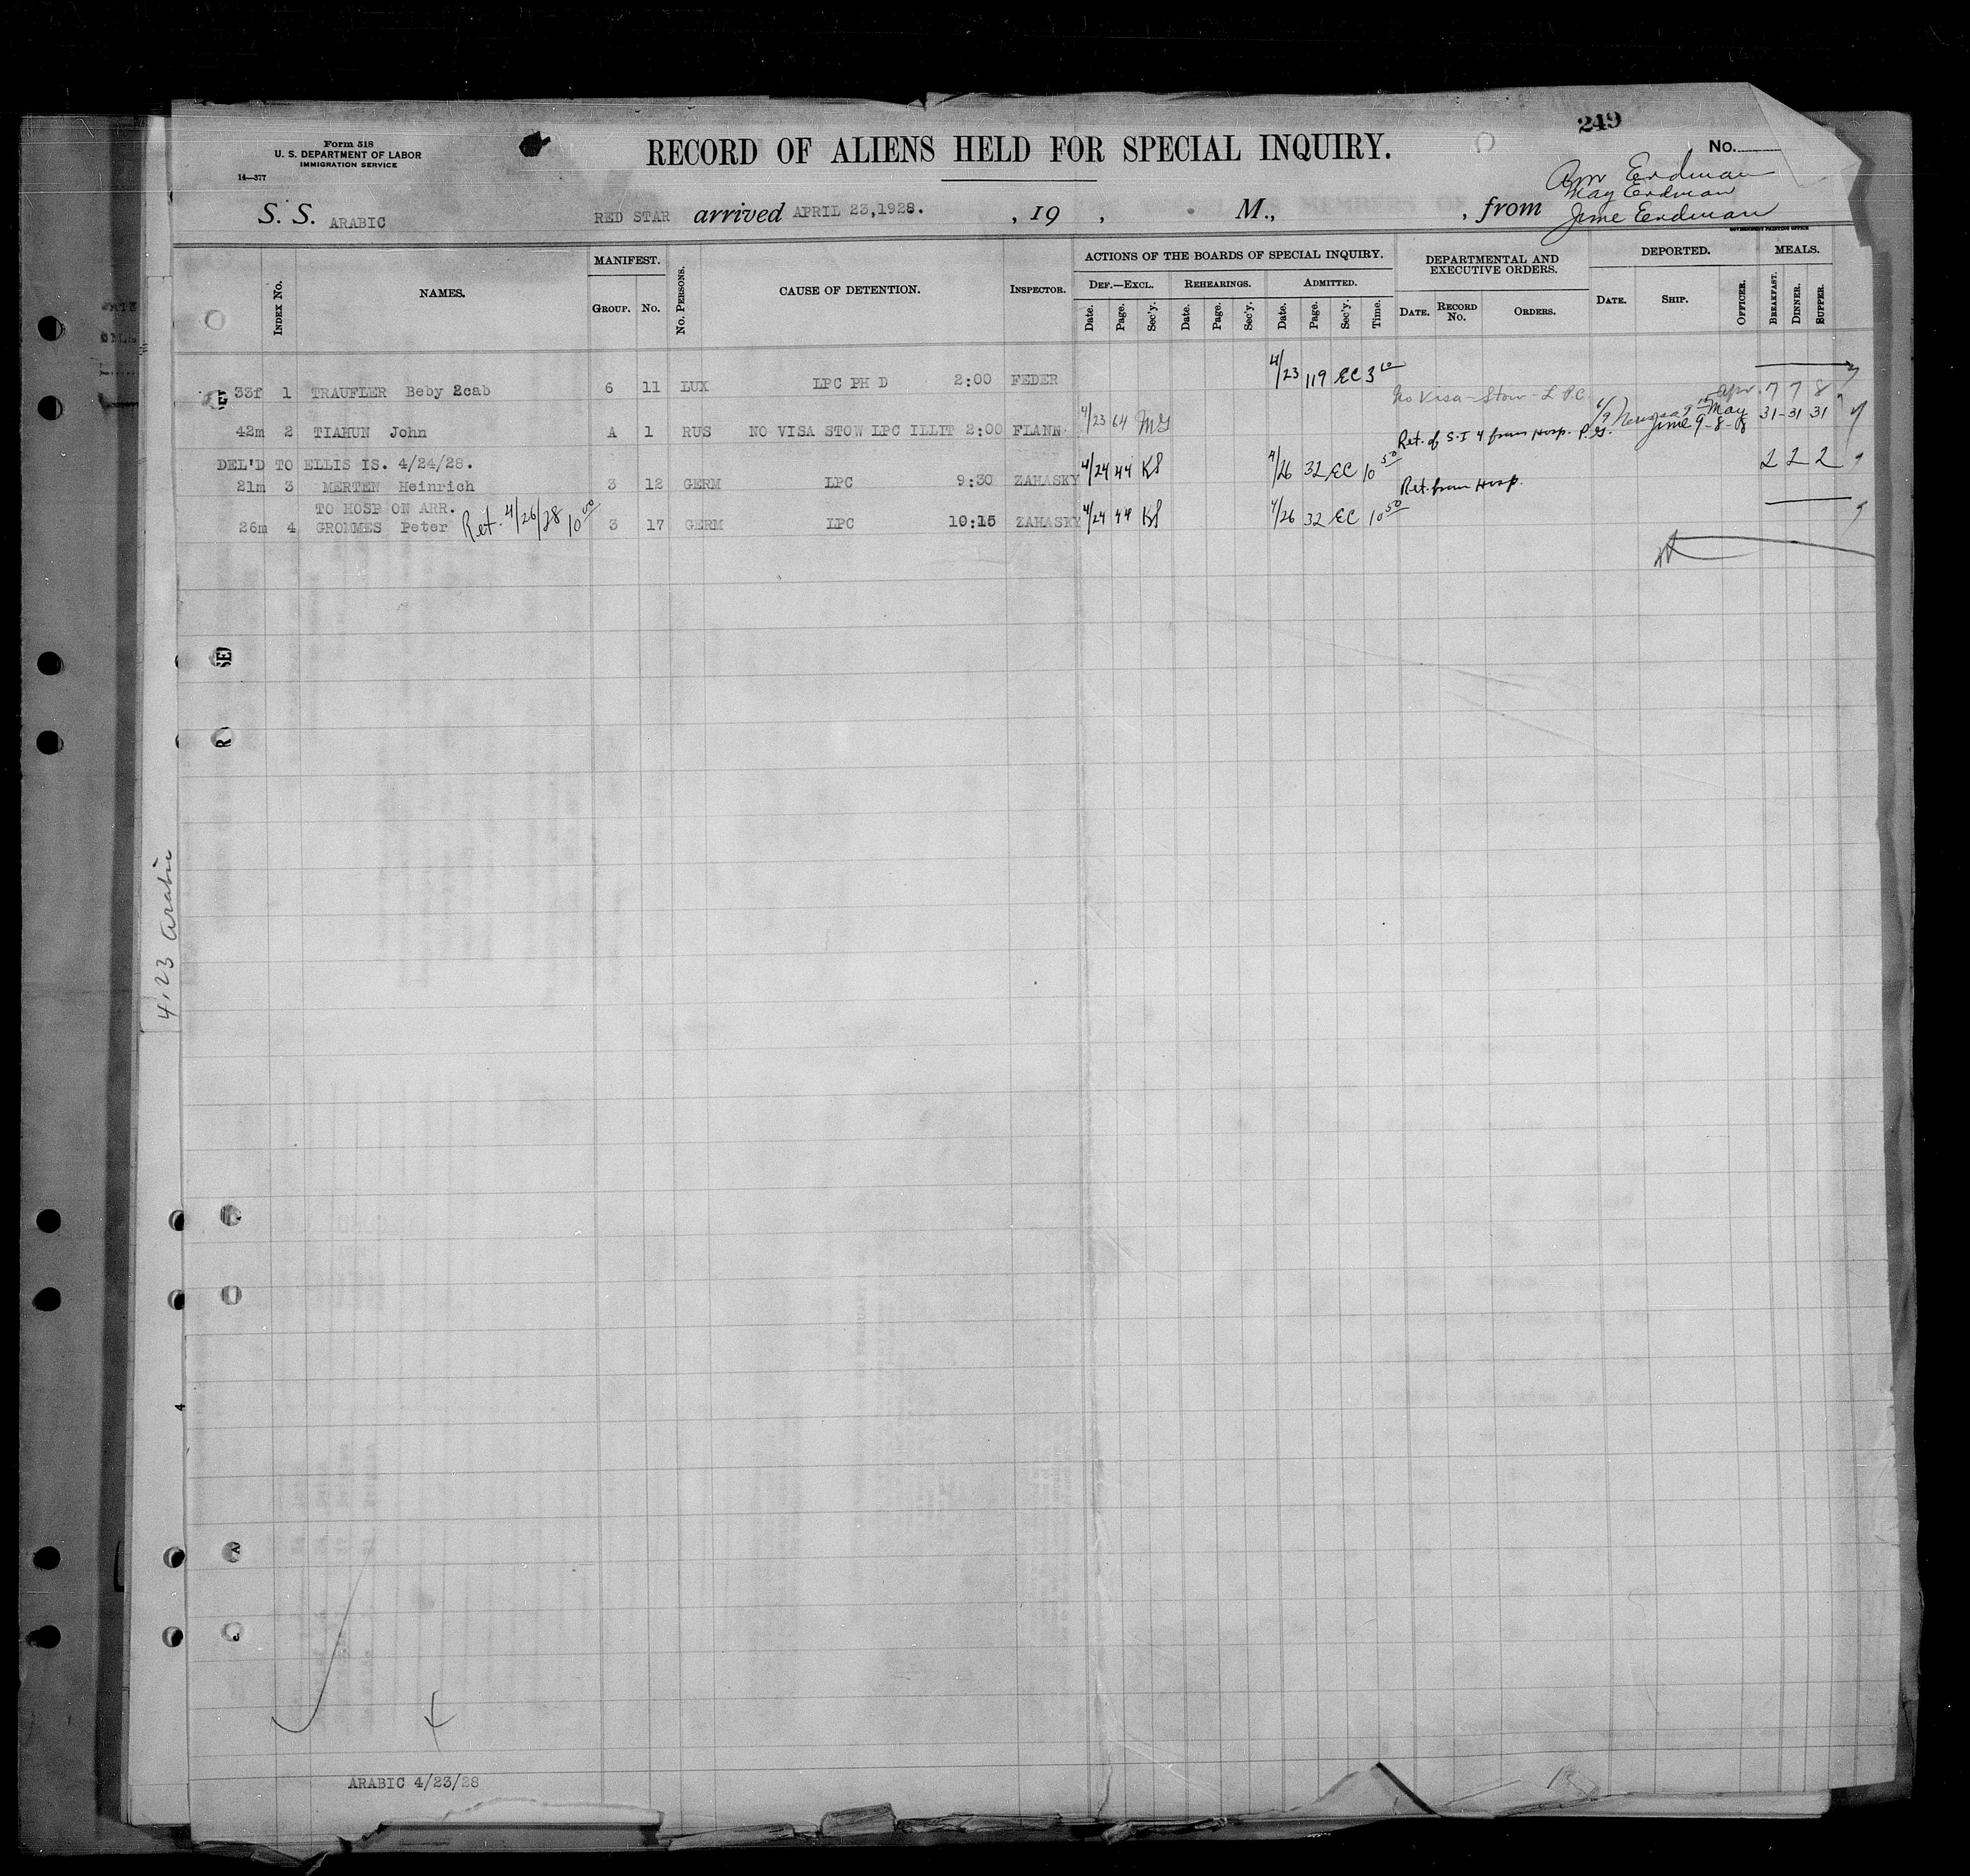 249
Form 518
U. S. DEPARTMENT OF LABOR
IMMIGRATION SERVICE
14—377
RECORD OF ALIENS HELD FOR SPECIAL INQUIRY.
No.
Erdman
May Erdman
June Erdman
S. S. ARABIC RED STAR arrived APRIL 23,1928. , 19 , M., , from
GOVERNMENT PRINTING OFFICE
MANIFEST. ACTIONS OF THE BOARDS OF SPECIAL INQUIRY. DEPARTMENTAL AND EXECUTIVE ORDERS. DEPORTED. MEALS.
Index No. NAMES. Group. No. No. Persons. CAUSE OF DETENTION. Inspector. Def.—Excl. Rehearings. Admitted.
Date. Page. Sec'y. Date. Page. Sec'y. Date. Page. Sec'y. Time. Date. Record No. Orders. Date. Ship. Officer. Breakfast. Dinner. Supper.
33f 1 TRAUFLER Beby 2cab 6 11 LUX LPC PH D 2:00 FEDER 4/23 119 EC 3 10
No Visa - Stow - L P C. Apr. 7 7 8
42m 2 TIAHUN John A 1 RUS NO VISA STOW LPC ILLIT 2:00 FLANN 4/23 64 MG 6/9 May 31-31 31
June 9-8-8
Ret. of S.I 4 from Hosp. P.G.
DEL'D TO ELLIS IS. 4/24/28.
21m 3 MERTEN Heinrich 3 12 GERM LPC 9:30 ZAHASKY 4/24 44 KS 4/26 32 EC 10 50 2 2 2
Ret. from Hosp.
TO HOSP ON ARR.
26m 4 GROMMES Peter Ret. 4/26/28 10 00 3 17 GERM LPC 10:15 ZAHASKY 4/24 44 KS 4/26 32 EC 10 50
4.23 Arabic
4
ARABIC 4/23/28